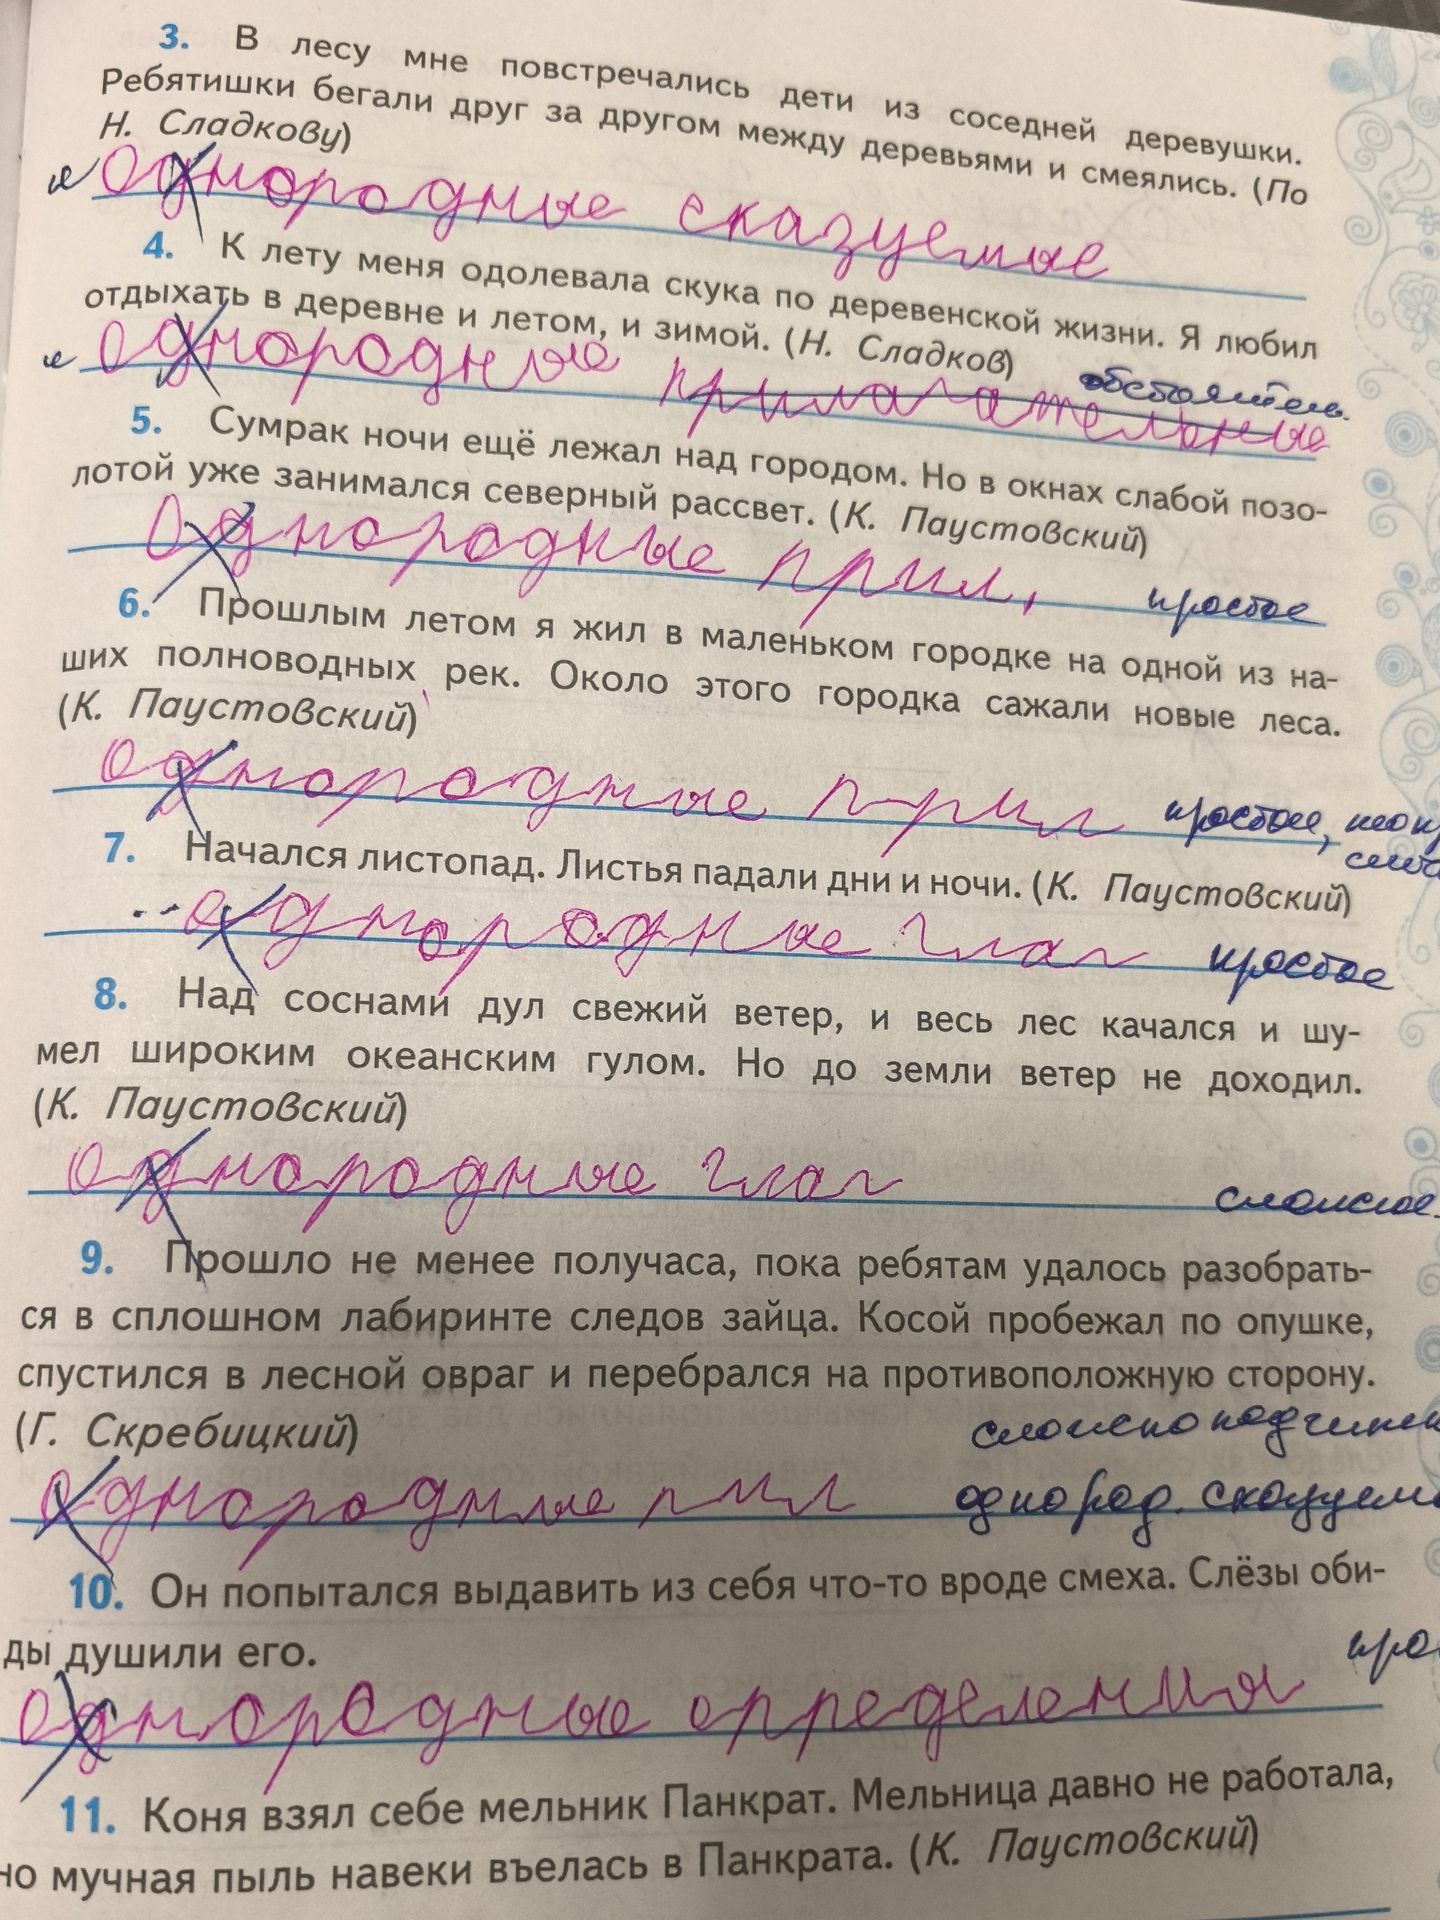 3. В лесу мне повстречались дети из соседней деревушки.
Ребятишки бегали друг за другом между деревьями и смеялись. (По
Н. Сладкову)
и Однородные сказуемые
4. К лету меня одолевала скука по деревенской жизни. Я любил
отдыхать в деревне и летом, и зимой. (Н. Сладков)
обстоятель.
и Однородные прилагательные
5. Сумрак ночи ещё лежал над городом. Но в окнах слабой позо-
лотой уже занимался северный рассвет. (К. Паустовский)
Однородные прил, простое
6. Прошлым летом я жил в маленьком городке на одной из на-
ших полноводных рек. Около этого городка сажали новые леса.
(К. Паустовский)
однородные прил простое,
7. Начался листопад. Листья падали дни и ночи. (К. Паустовский)
однородные глаг простое
8. Над соснами дул свежий ветер, и весь лес качался и шу-
мел широким океанским гулом. Но до земли ветер не доходил.
(К. Паустовский)
однородные глаг сложное.
9. Прошло не менее получаса, пока ребятам удалось разобрать-
ся в сплошном лабиринте следов зайца. Косой пробежал по опушке,
спустился в лесной овраг и перебрался на противоположную сторону.
(Г. Скребицкий) сложноподчинен
однородные пил однород. сказуем
10. Он попытался выдавить из себя что-то вроде смеха. Слёзы оби-
ды душили его.
про
однородные определения
11. Коня взял себе мельник Панкрат. Мельница давно не работала,
но мучная пыль навеки въелась в Панкрата. (К. Паустовский)